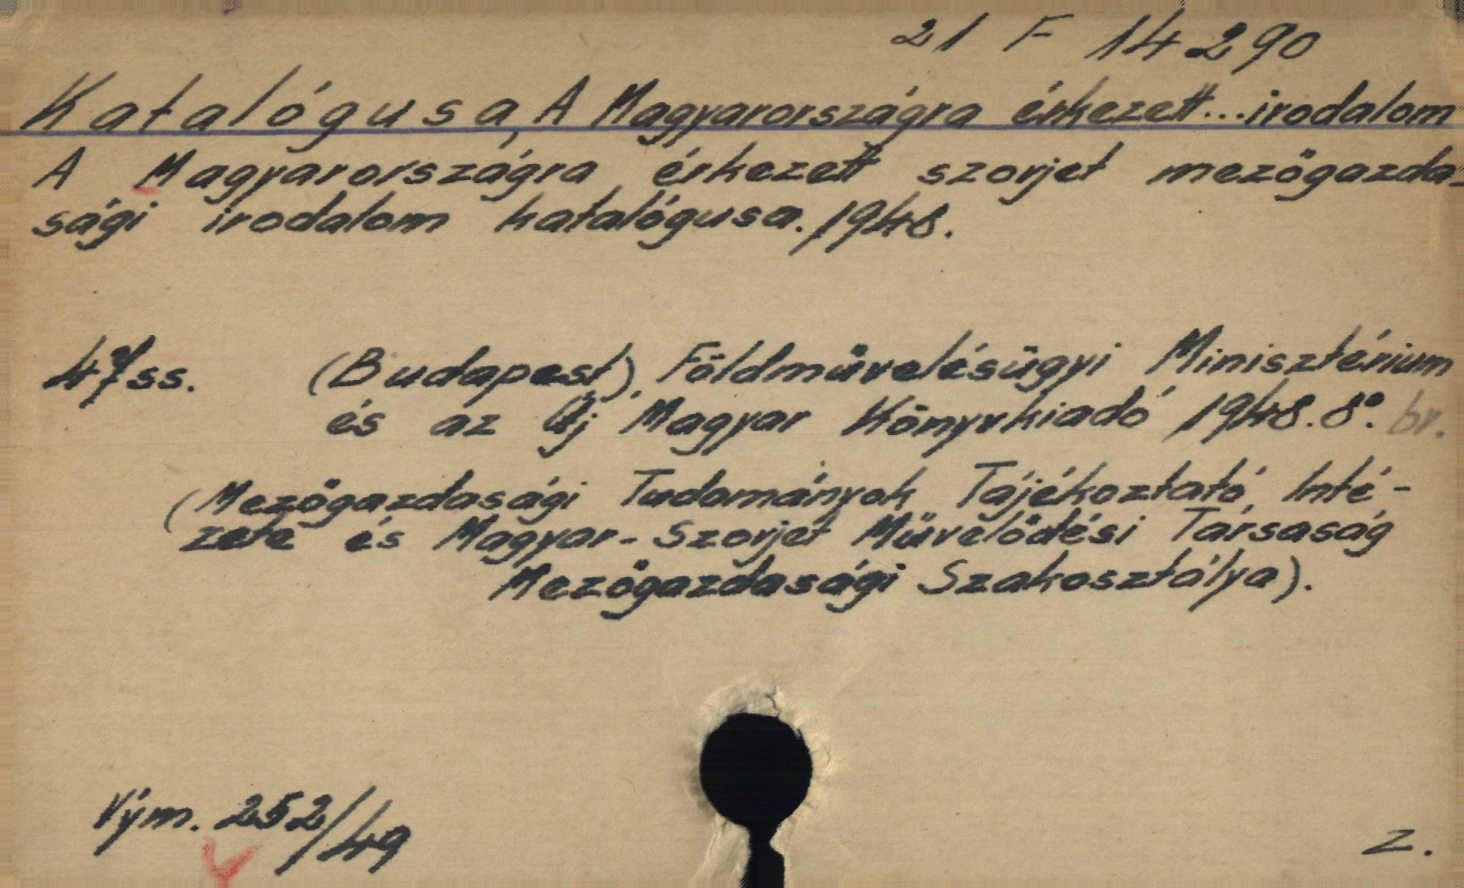 21 F 14290
Katalógusa, A Magyarországra érkezett...irodalom
A Magyarországra érkezett szovjet mezőgazda-
sági irodalom katalógusa. 1948.
47ss. (Budapest), Földművelésügyi Minisztérium
és az Új Magyar Könyvkiadó 1948. 8°. br.
(Mezőgazdasági Tudományok Tájékoztató Inté-
zete és Magyar-Szovjet Művelődési Társaság
Mezőgazdasági Szakosztálya).
Vým. 252/49
Z.